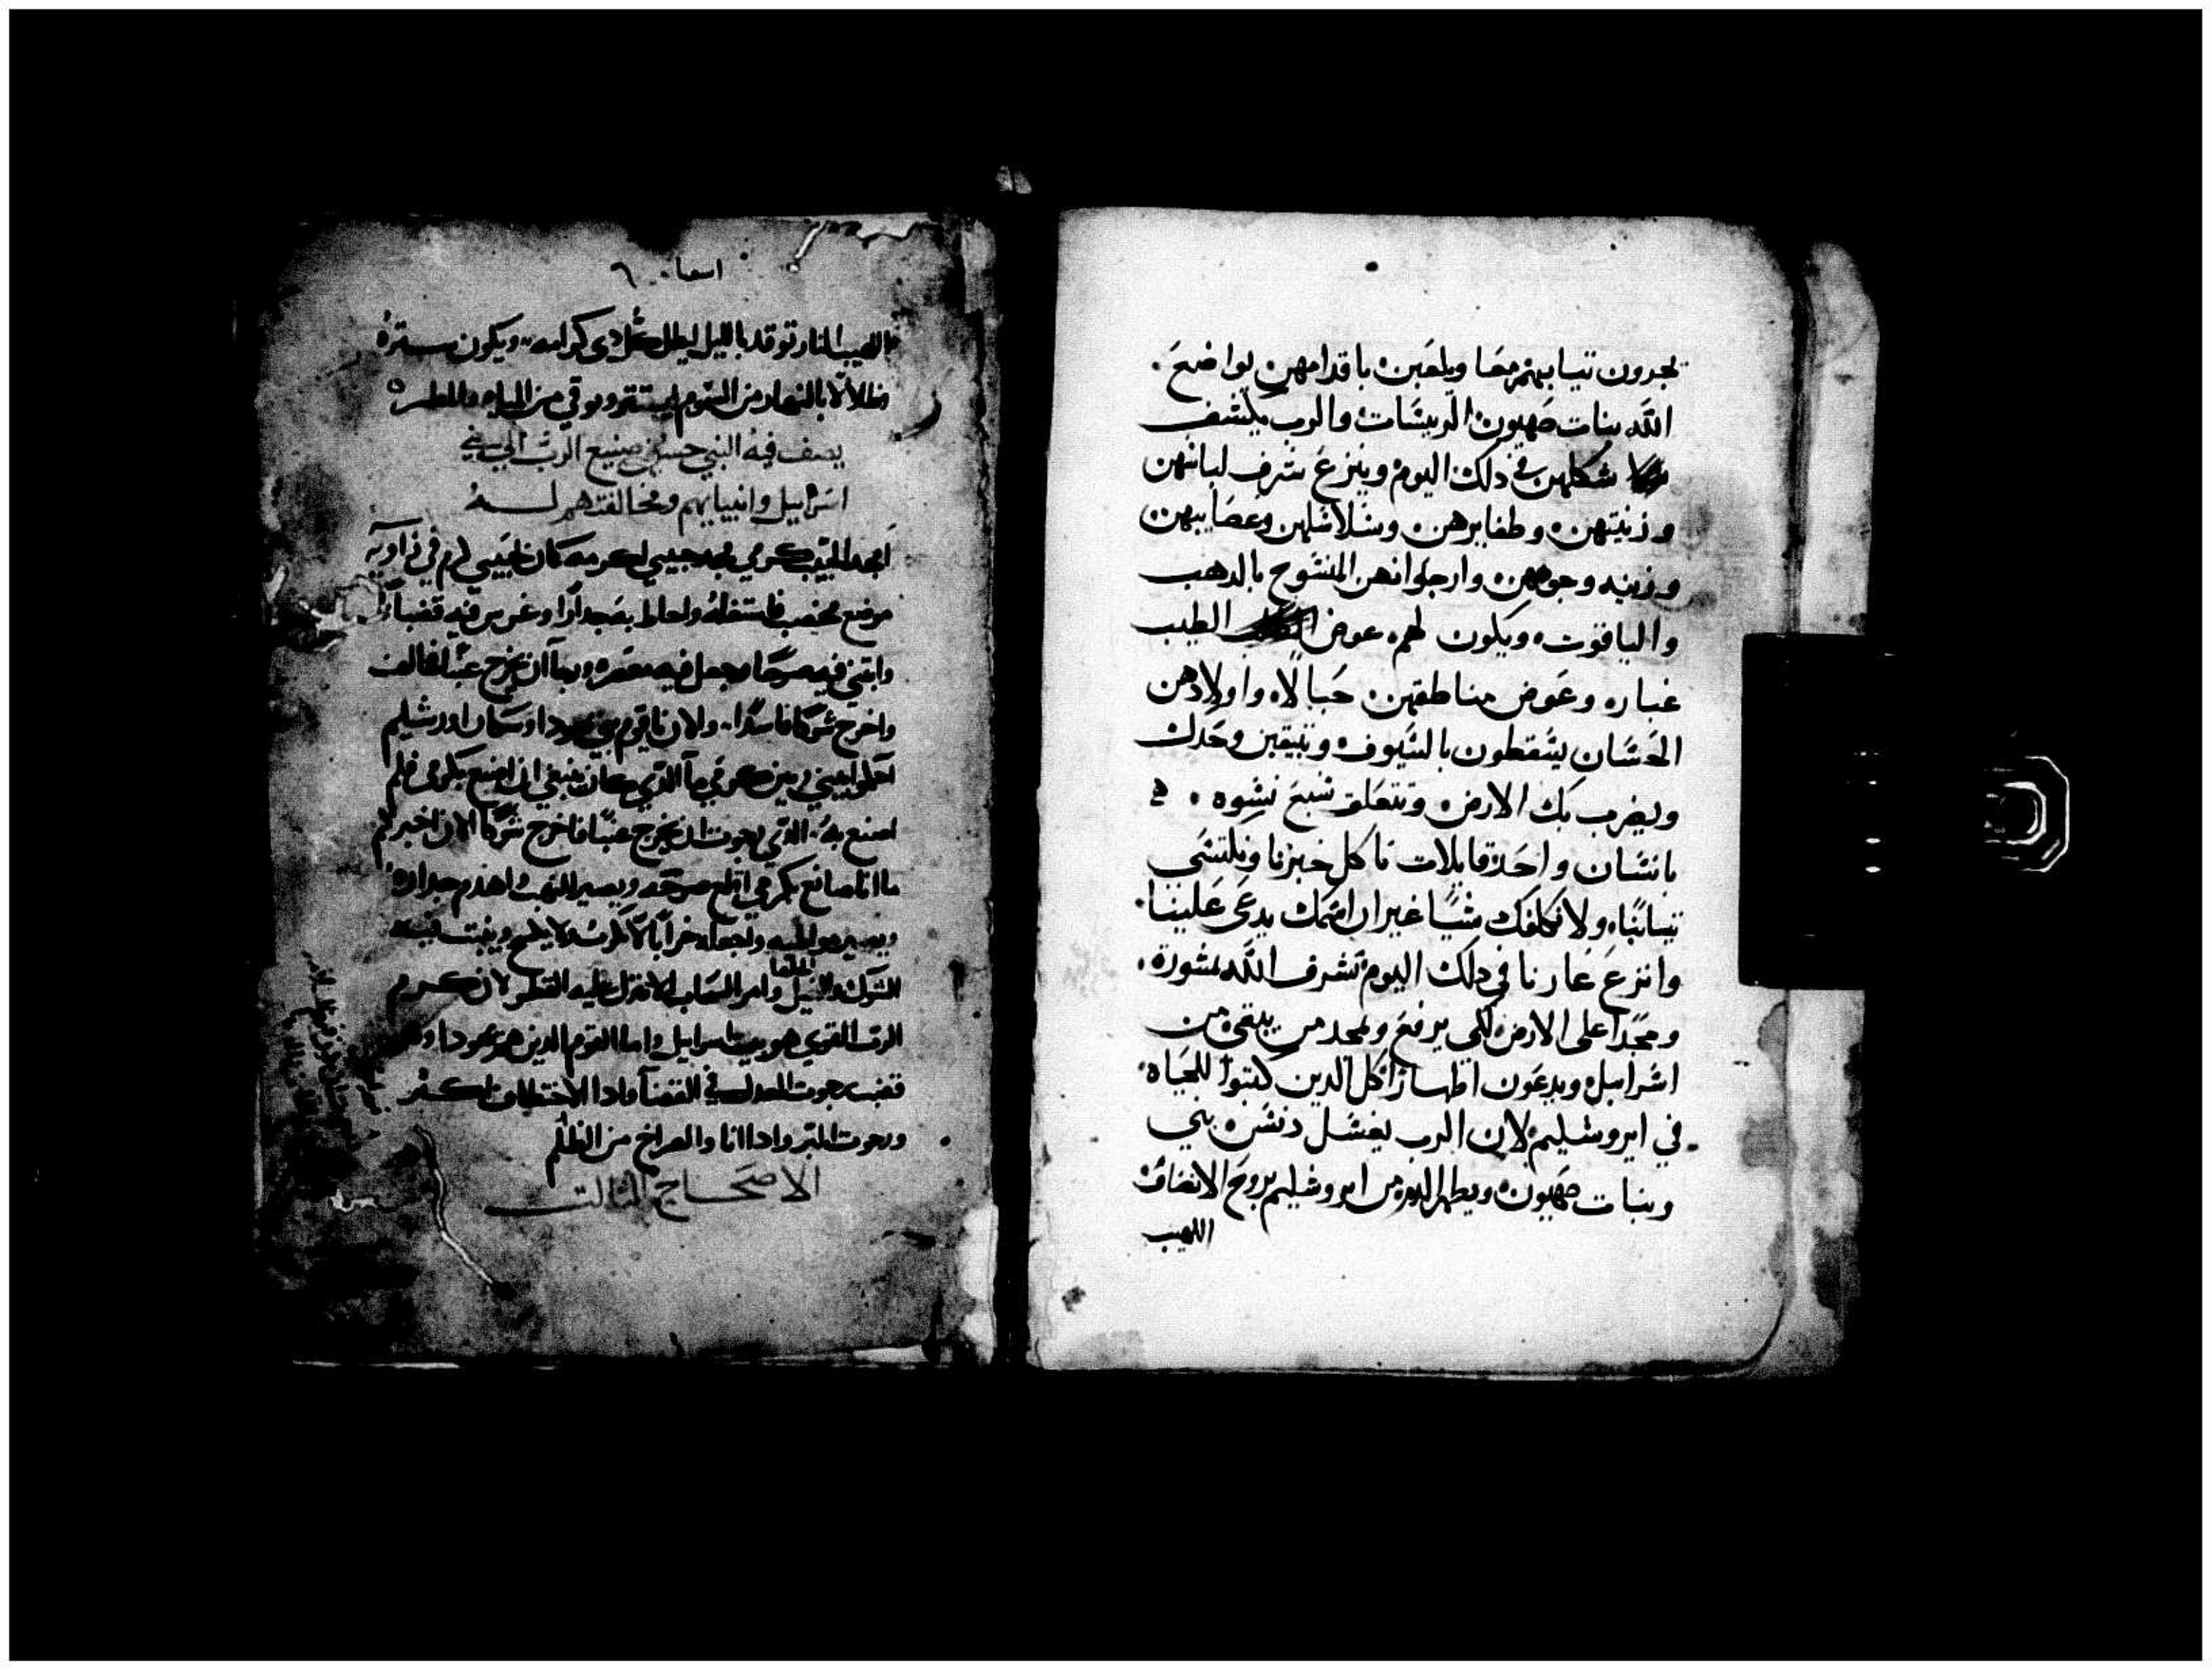 يجرون تيابهم معًا ويلعبن باقدامهن يواضع
الله بنات صهيون الريسَات والرب يكشف
شكلهن في دلك اليوم وينزع شرف لباسهن
وزينتهن وطفايرهن وسلاسلهن وعصايبهن
وزينه وجوههن وارجوانهن المنسوج بالدهب
والياقوت ويكون لهم عوض الطيب
غباره وعوض مناطقهن حبالاه واولادهن
الحسَان يسَقطون بالسَيوف وتبيقين وحدك
ويضرب بك الارض وتتعلق سَبع نسَوه
بانسَان واحد قايلات ناكل خبزنا ونلتسَي
تيابنا ولا نكلفك شيًا غير ان اسَمك يدعَى عَلينا
وانزع عَارنا في دلك اليوم تشرف الله بمشورة
ومجدًا على الارض لكي يرفع ويمجد من يبقى من
اسَراييل ويدعون اطهارًا كل الدين كتبوا للحَياه
في ايروشليم لان الرب يغسَل دنسَ بني
وبنات صهيون ويطهر الدم من ايروشليم بروح الانصاف
اللهيب
اسعيا ٦
اللهيب النار توقد بالليل ليظلل كل دي كرامه ويكون سترة
وظلالًا بالنهار من السموم ليستتر ويوقي من المياه والمطر
يصف فيه النبي حسن صنيع الرب الي بني
اسراييل وانبيايهم ومخالفتهم له
امجد الحبيب كرمي مجد حبيبي لكرمه كان لحبيبي كرم في زاويه
موضع مخصب فاستغله واحاط به جدارًا وغرس فيه قضبانًا
وابتني فيه صرحًا وجعل فيه معصره ورجا ان يخرج عنبًا فخالف
واخرج شوكًا فاسدًا ولان يا قوم بني يهودا وسكان اورشليم
احكموا بيني وبين كرمي ما الذي كان ينبغي ان اصنع بكرمي فلم
اصنع به الذي رجوت ان يخرج عنبًا فاخرج شوكًا الان اخبركم
ما انا صانع بكرمي اقلع صرحه ويصير للنهب واهدم جداره
ويصير موطيه واجعله خرابًا لا يكرث ولا يفلح وينبت فيه
الشوك وامر السحاب الا تنزل عليه القطر لان كرم
الرب القوي هو بيت اسراييل واما القوم الدين هم يهودا وهم
قضب رجوت العدل في القضا وادا الاختطاف كثر
ورجوت البر وادا انا والصراخ من الظلم
الاصحَاح التالت